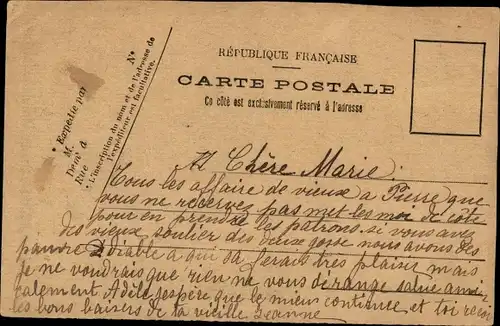 RÉPUBLIQUE FRANÇAISE
CARTE POSTALE
Ce côté est exclusivement réservé à l'adresse
Expédié par
M.
Demt à
Rue
N°
L'inscription du nom et de l'adresse de
l'expéditeur est facultative.
Chère Marie
Tous les affaire de vieux a Pierre que
vous ne reservez pas met les moi de côté
pour en prendre les patrons si vous avez
des vieux soulier des deux gosse nous avons des
pauvre diable a qui sa ferait très plaisir mais
je ne voudrais que rien ne vous dérange salue ami
calement Adèle j'espère que le mieux continue et toi reçoi
les bons baisers de ta vieille Jeanne